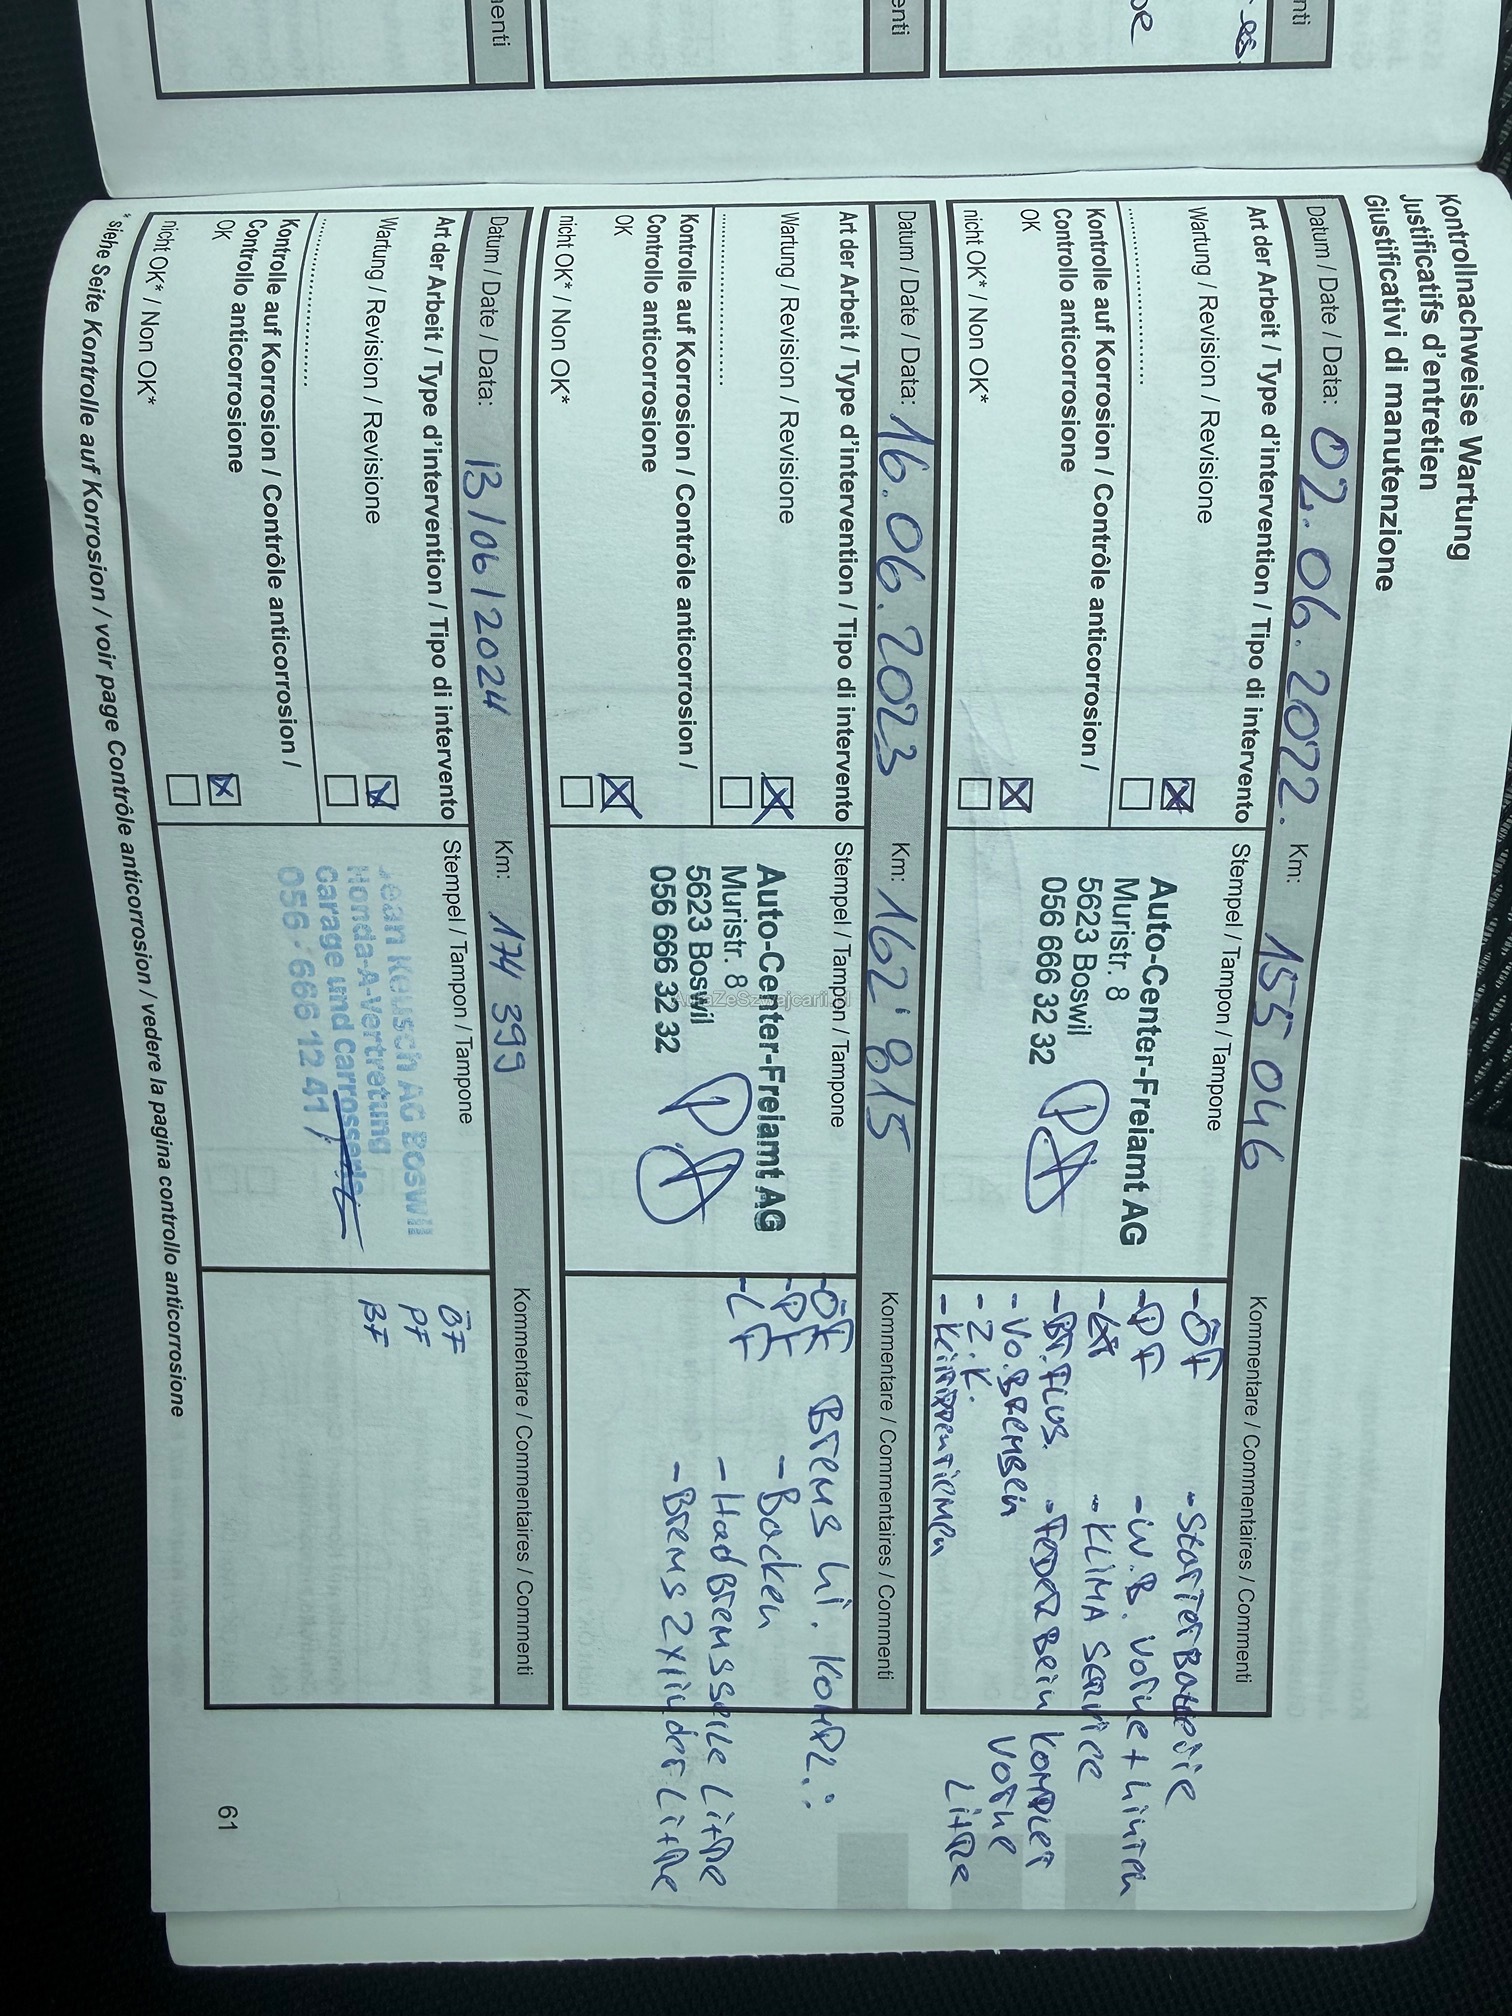 nti
es
be
enti
enti
Kontrollnachweise Wartung
Justificatifs d'entretien
Giustificativi di manutenzione
Datum / Date / Data: 02.06.2022. Km: 155 046 Kommentare / Commentaires / Commenti
Art der Arbeit / Type d'intervention / Tipo di intervento
Wartung / Revision / Revisione
Kontrolle auf Korrosion / Contrôle anticorrosion /
Controllo anticorrosione
OK
nicht OK* / Non OK*
Stempel / Tampon / Tampone
Auto-Center-Freiamt AG
Muristr. 8
5623 Boswil
056 666 32 32
-ÖF -Starterbatterie
-PF -W.B. vorne + hinten
-KLIMA SERVICE
-BR.FLUS. -FEDERBein KOMPLET
-Vo.BREMSEN vorne
-Z.K. Litre
-Keilrippenriemen
Datum / Date / Data: 16.06.2023 Km: 162'815 Kommentare / Commentaires / Commenti
Art der Arbeit / Type d'intervention / Tipo di intervento
Wartung / Revision / Revisione
Kontrolle auf Korrosion / Contrôle anticorrosion /
Controllo anticorrosione
OK
nicht OK* / Non OK*
Stempel / Tampon / Tampone
Auto-Center-Freiamt AG
Muristr. 8
5623 Boswil
056 666 32 32
AutaZeSzwajcarii.pl
-ÖF Brems hi. KOMPL.:
-PF -Backen
-LF -Hadbremsseile Li+Re
-Brems Zylinder Li+Re
Datum / Date / Data: 13/06/2024 Km: 174 399 Kommentare / Commentaires / Commenti
Art der Arbeit / Type d'intervention / Tipo di intervento
Wartung / Revision / Revisione
Kontrolle auf Korrosion / Contrôle anticorrosion /
Controllo anticorrosione
OK
nicht OK* / Non OK*
Stempel / Tampon / Tampone
Jean Reusch AG Boswil
Honda-A-Vertretung
Garage und Carrosserie
056 - 666 12 41
ÖF
PF
BF
* siehe Seite Kontrolle auf Korrosion / voir page Contrôle anticorrosion / vedere la pagina controllo anticorrosione
61